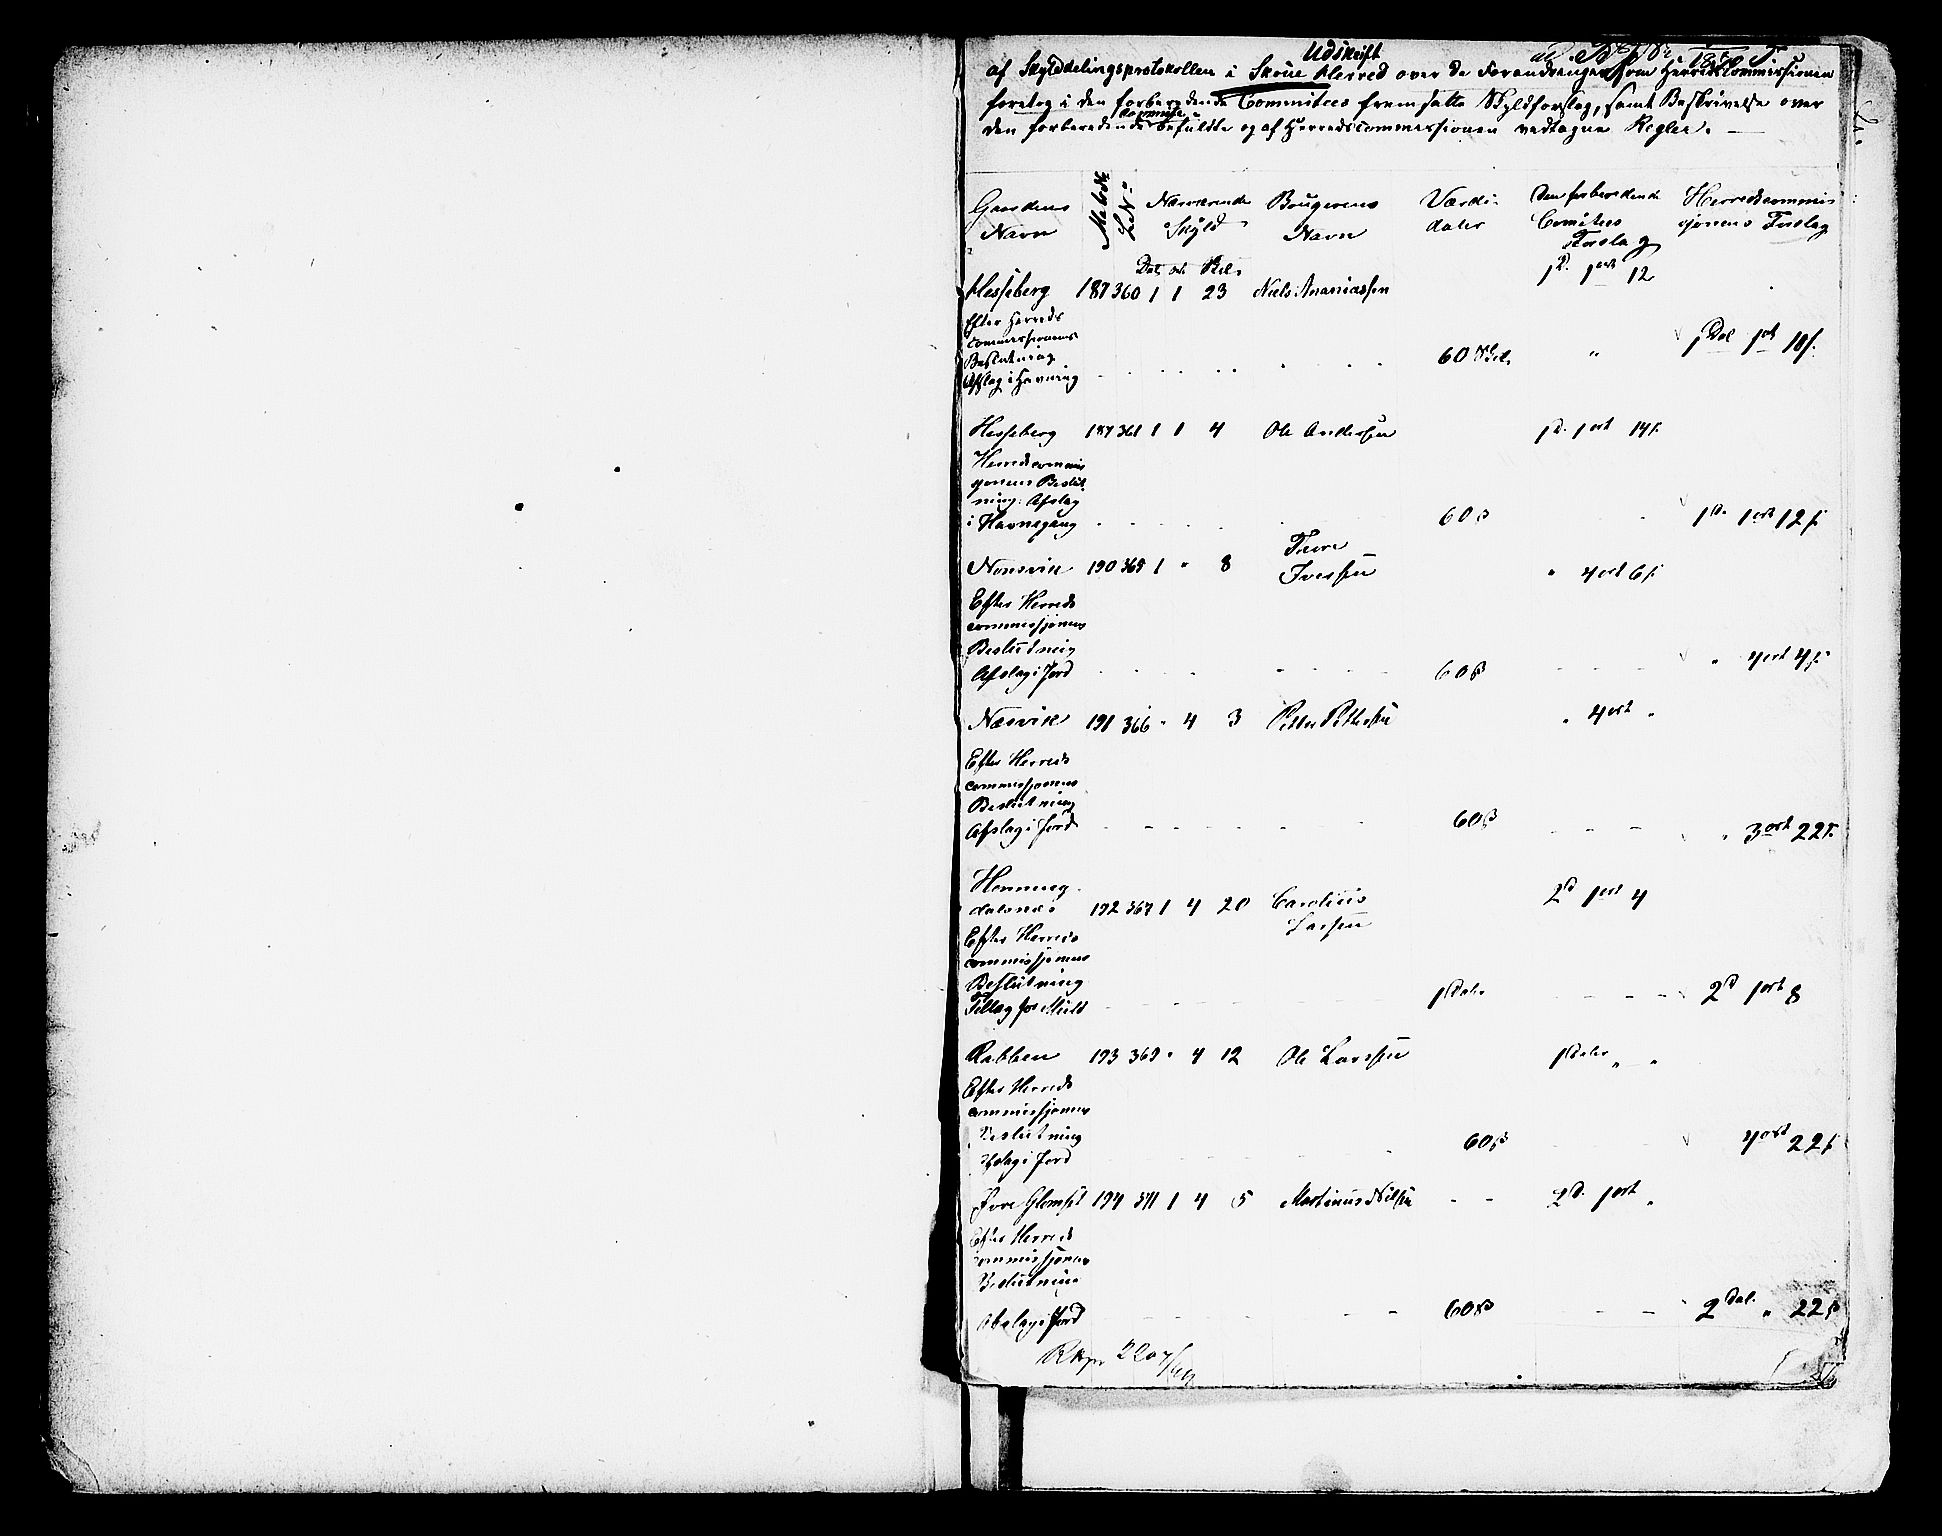 Udskrift
af Skylddelingsprotokollen i Skoue Herred over de Forandringer som Herredscommissionen
foretog i den forberedende Committees fremsatte Skyldforslag, samt Beskrivelse over
den forberedende befuldte og af Herredscommissionen vedtagne Regler.
Gaardens Navn | Matr. No | L No | Nærværende Skyld | Brugerens Navn | Værdi daler | Den forberedende Comitees Forslag | Herredscommissjonens Forslag
Dal. ort Skil.
Hesseberg 187 360 1 1 23 Niels Ananiassen 1 D. 1 ort 12
Efter Herreds
commissionens
Beslutning
Afslag i Havning 60 Skil. " 1 Dal 1 ort 10 s.
Hesseberg 187 361 1 1 4 Ole Andersen 1 D. 1 ort 14 s.
Herredscommis
sjonens Beslut
ning: Afslag
i Havnegang 60 s 1 D. 1 ort 12 s.
Nonsvik 190 365 1 " 8 Tore Iversen " 4 ort 6 s.
Efter Herreds
commissjonens
Beslutning
Afslag i Jord 60 s " 4 ort 4 s.
Næsvik 191 366 " 4 3 Petter Pettersen " 4 ort "
Efter Herreds
commissjonens
Beslutning
Afslag i Jord 60 s " 3 ort 22 s.
Henning
dalsnes 192 367 1 4 20 Carolius Larsen 2 d 1 ort 4
Efter Herreds
commissjonens
Beslutning
Tillæg for Muld 1 Daler 2 d 1 ort 8
Rabben 193 369 " 4 12 Ole Larsen 1 Daler " "
Efter Herreds
commissjonens
Beslutning
Afslag i Jord 60 s 4 ort 22 s.
Øvre Glomset 194 371 1 4 5 Martinus Nilsen 2 D. 1 ort "
Efter Herreds
commissjonens
Beslutning
Afslag i Jord 60 s 2 Dal. " 22 s